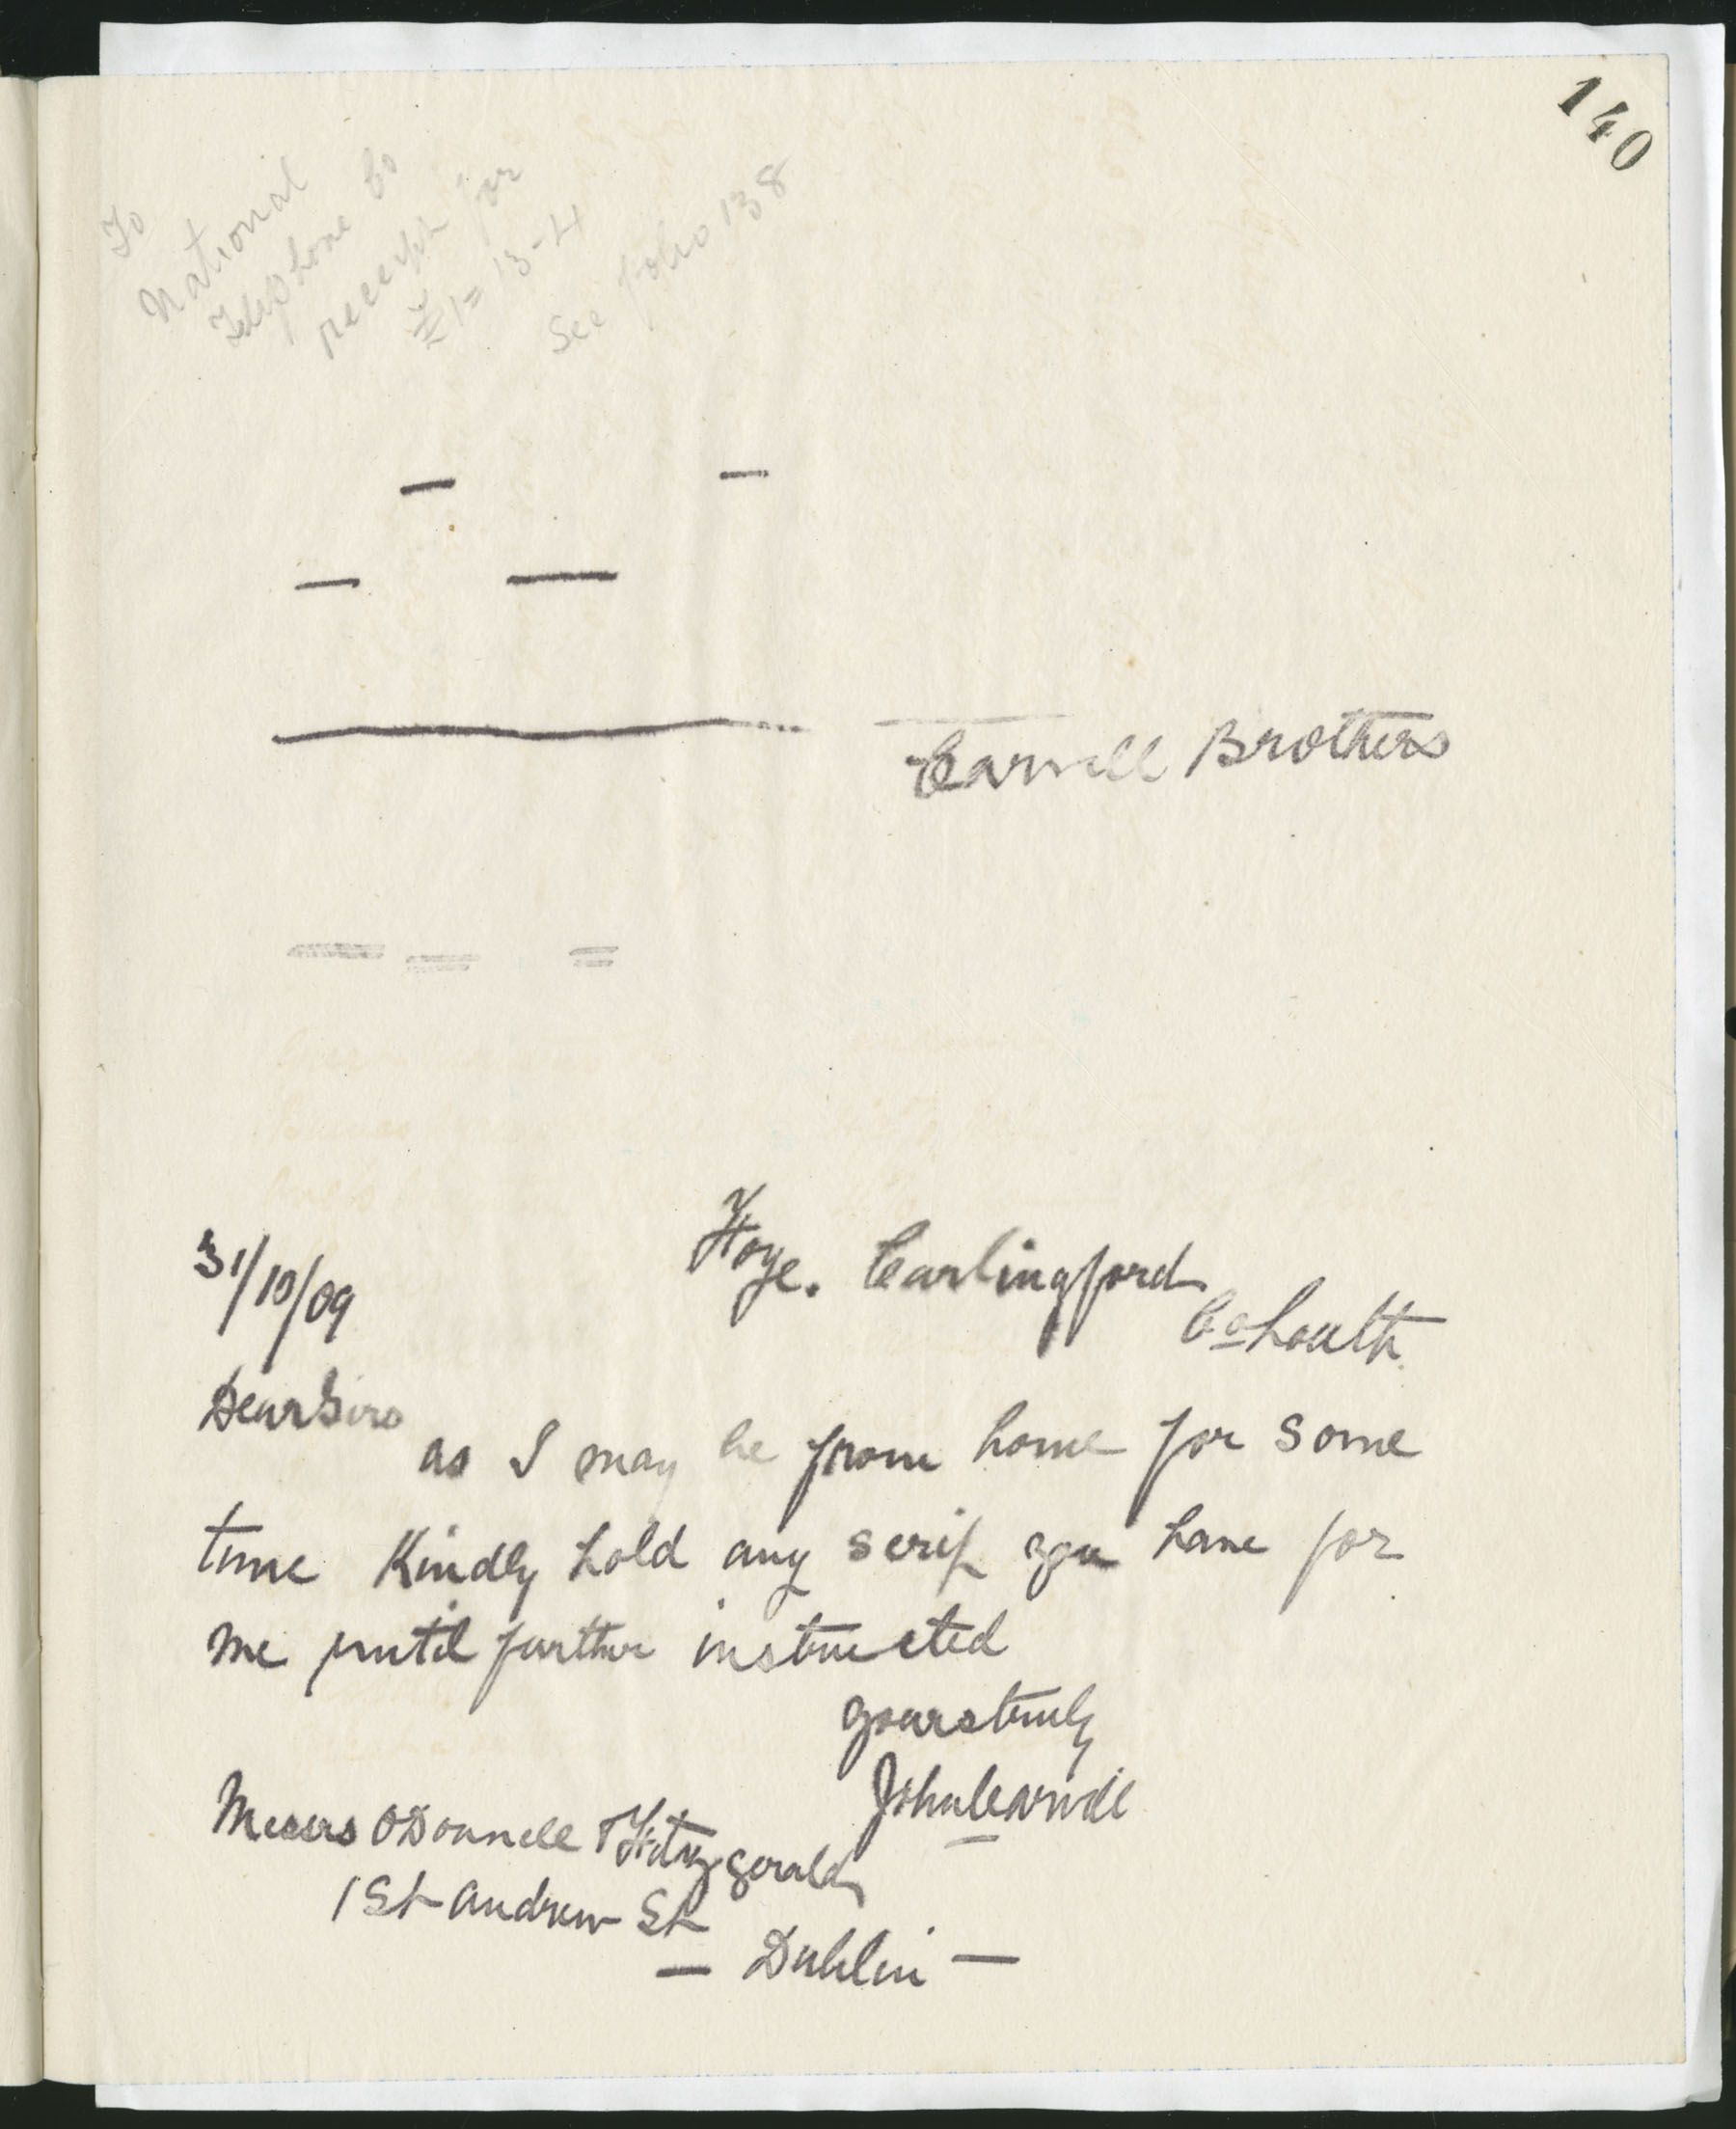 140
To
National
Telephone Co
receipt for
£1 = 13-4
See folio 138
Carvill Brothers
31/10/09
Foye. Carlingford
Co Louth
Dear Sirs
as I may be from home for some
time Kindly hold any scrip you have for
me until further instructed
yours truly
John Carvill
Messrs O'Donnell & Fitzgerald
1 St Andrew St
— Dublin —